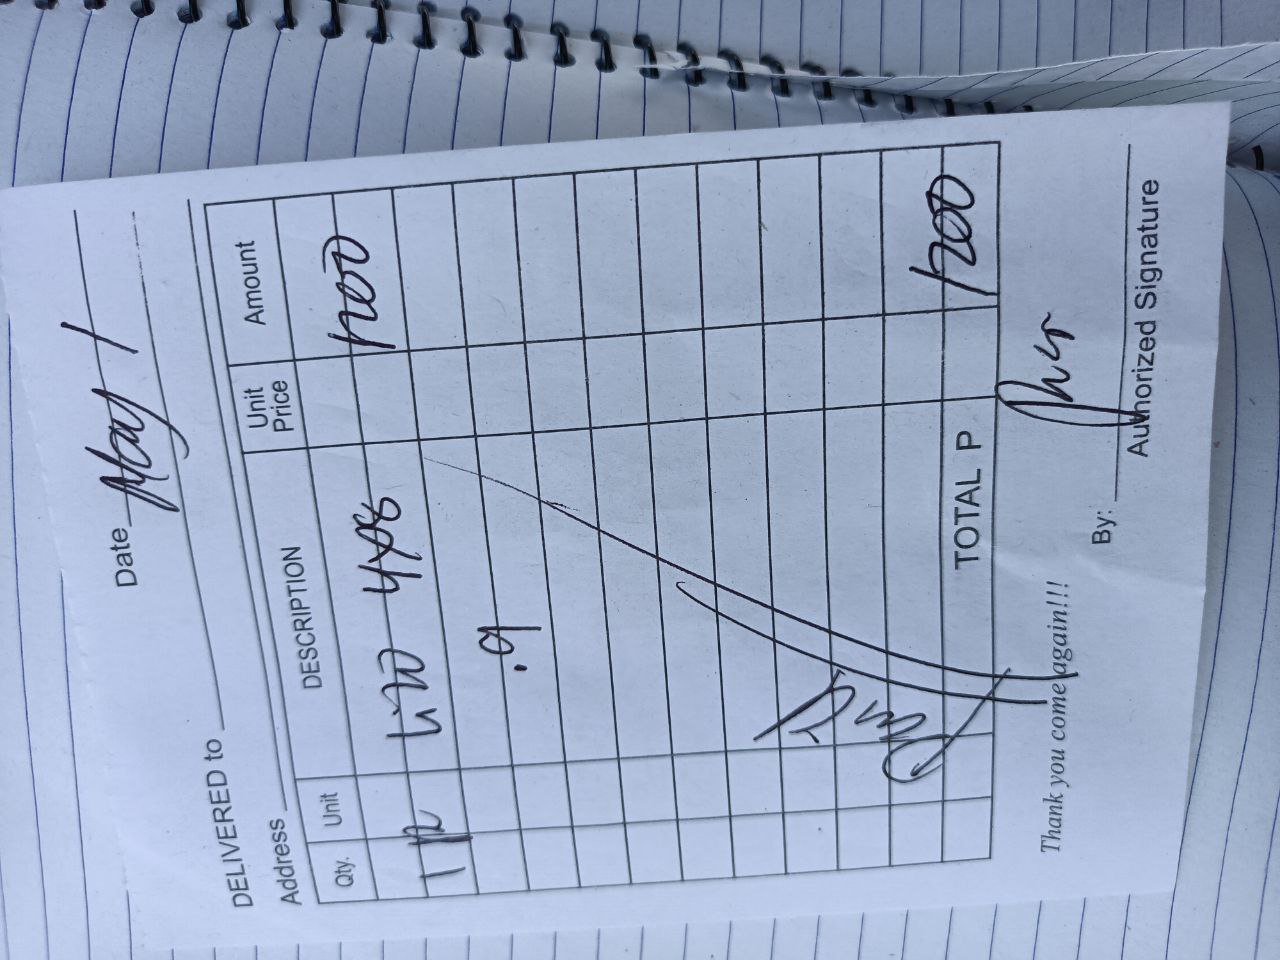 Date May 1
DELIVERED to
Address
Qty. Unit DESCRIPTION Unit Price Amount
1 4x8 1200
.9
TOTAL P 1200
Thank you come again!!!
By:
Authorized Signature